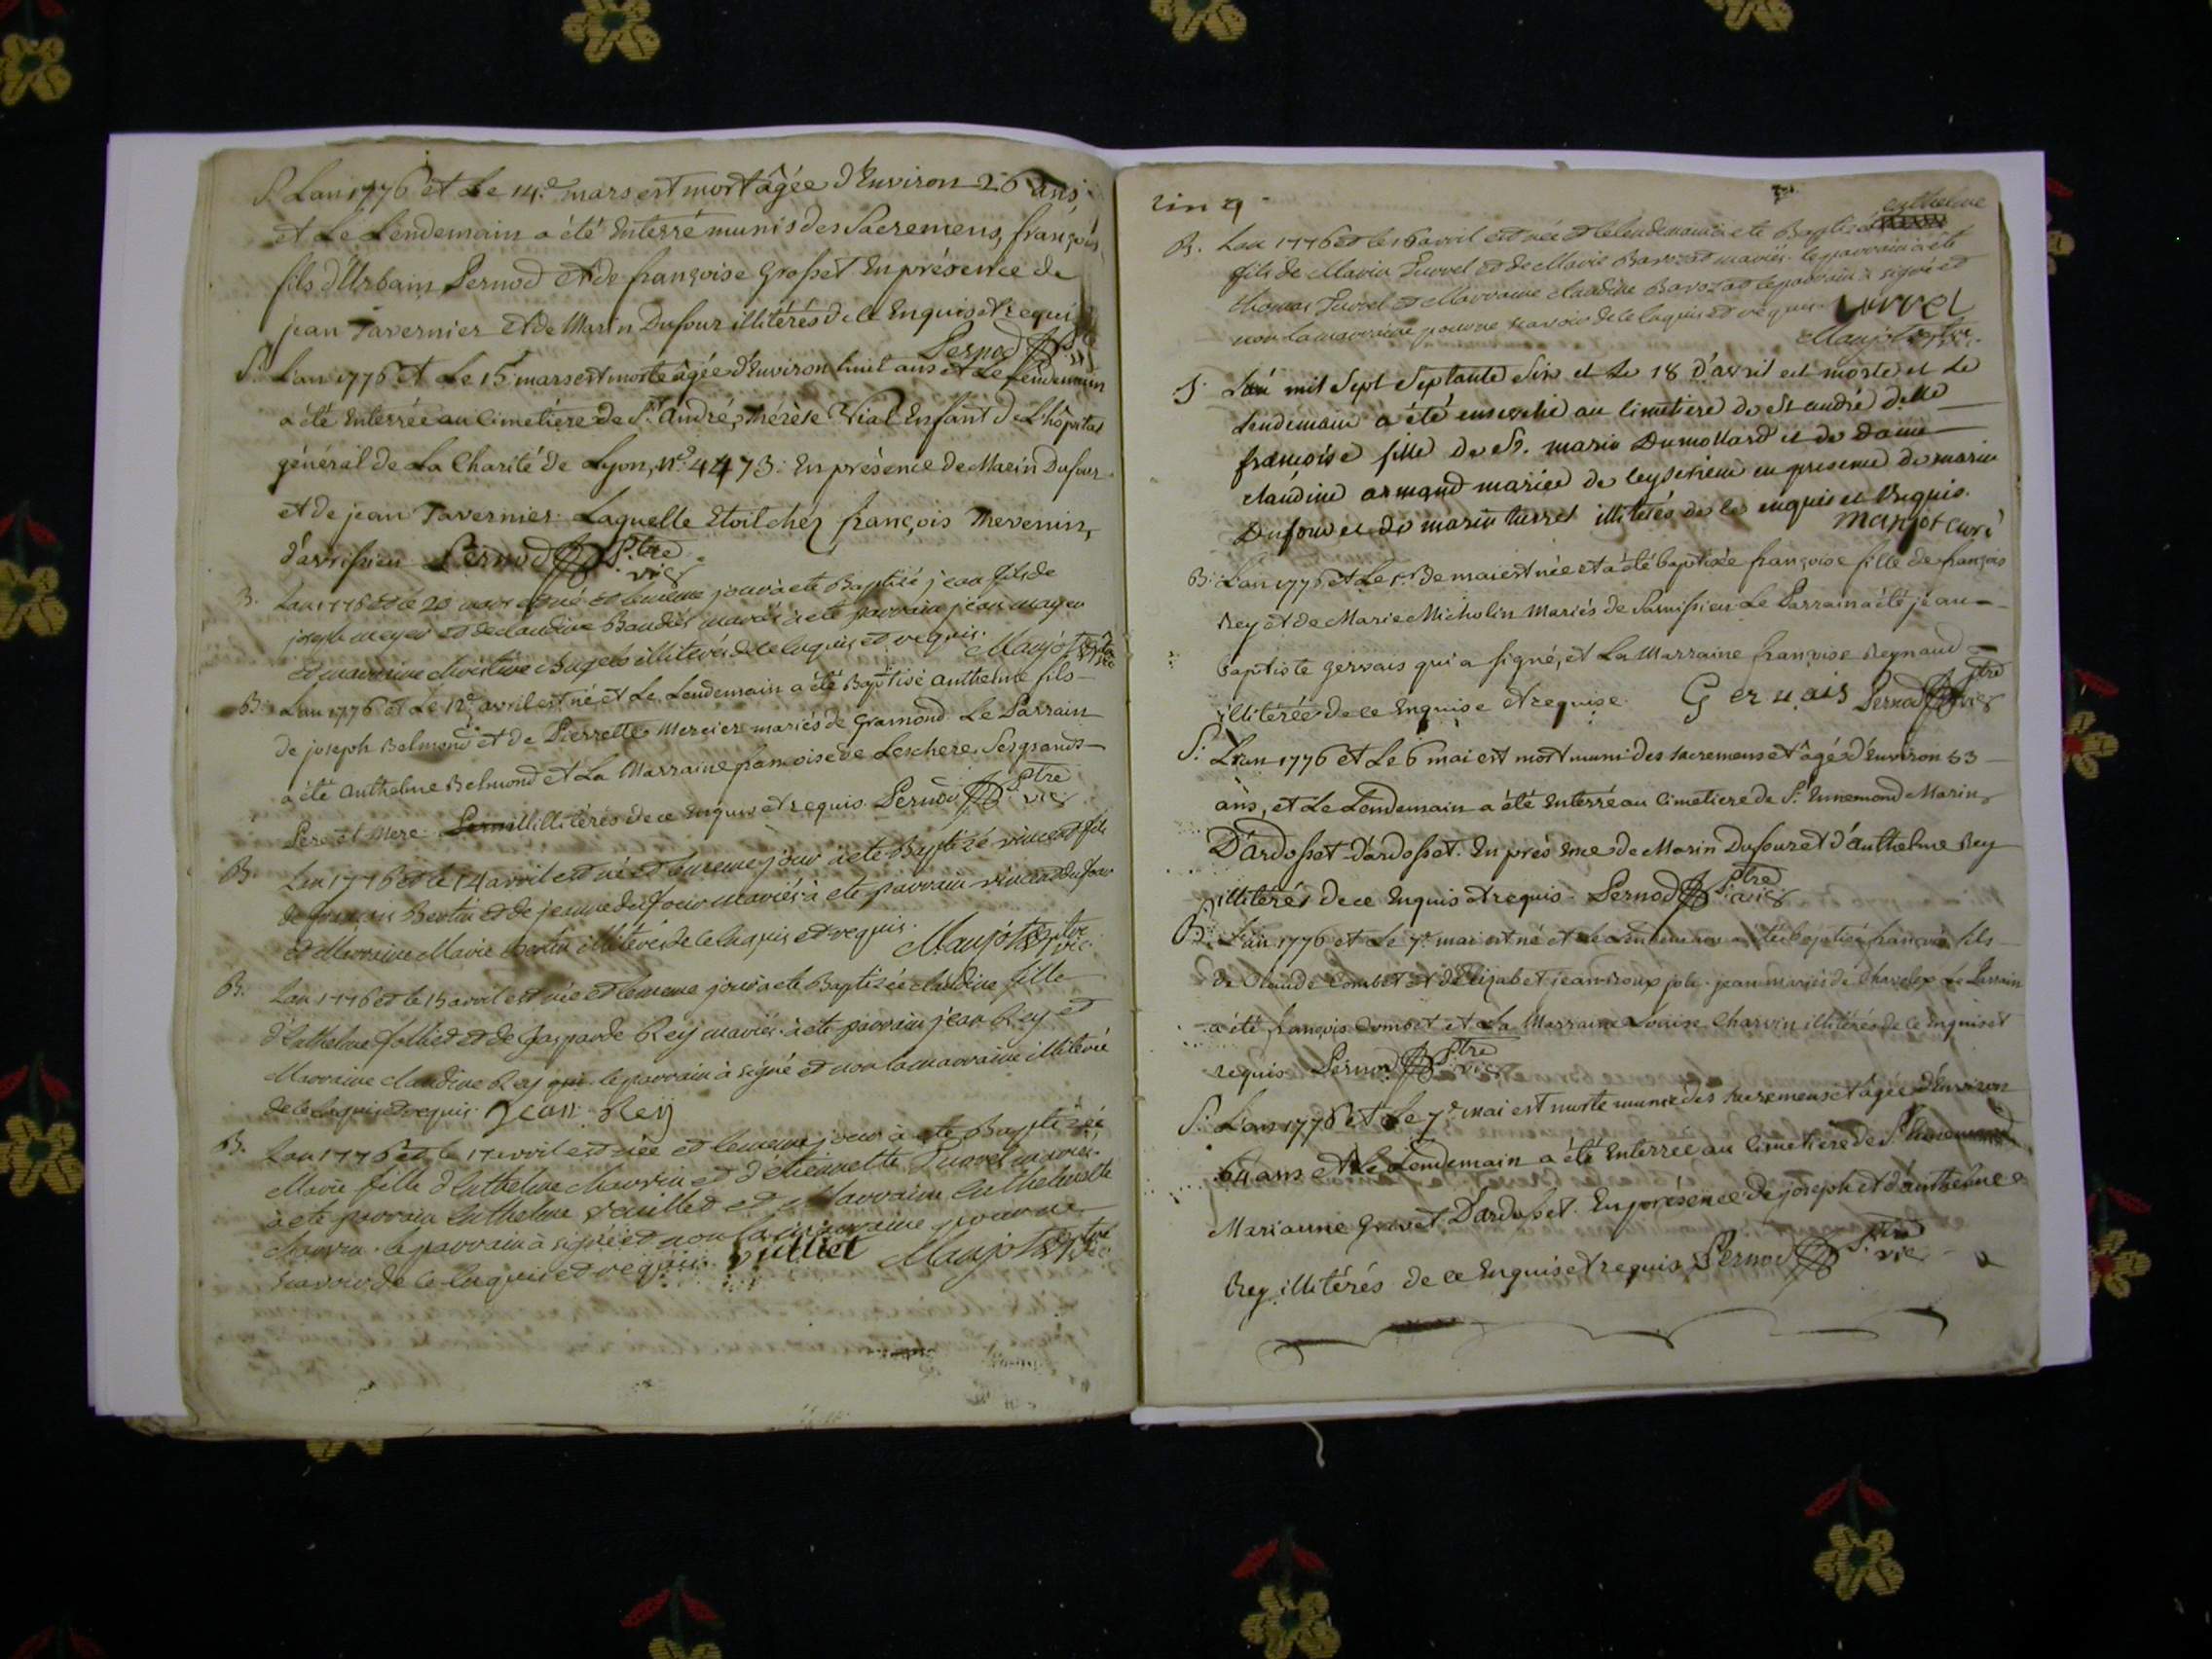 S. Lan 1776 et Le 14.e mars est mort âgée d'Environ 26 ans,
et Le Lendemain a été Enterré munis des Sacremens, françois,
fils d'Urbain Pernod et de françoise Grosset En présence de
jean Tavernier et de Marin Dufour illitérés de ce Enquis et requis
Pernod Ptre vic
S. L'an 1776 et Le 15 mars est morte âgée d'Environ huit ans et Le Lendemain
a été Enterrée au Cimetière de St. André, Thérèse Vial Enfant de L'hôpital
général de La Charité de Lyon, N.o 4473: En présence de Marin Dufour
et de jean Tavernier. Laquelle Etoit chéz françois Thevenin,
d'avrissieu Pernod Ptre vic
B. Lan 1776 et le 20 mars est né et le meme jour a ete Baptisé jean fils de
joseph meyer et de claudine Baudiés mariés a ete parrain jean mayer
et marraine illiterés de ce Enquis et requis. Manjot ptre vic
B. L'an 1776 et Le 12.e avril est né et Le Lendemain a été Baptisé anthelme fils
de joseph Belmond et de Pierrette Mercier mariés de Gramond. Le Parrain
a été anthelme Belmond et La Marraine françoise de Leschere, Ses grands
Pere et Mere. illitérés de ce Enquis et requis Pernod Ptre vic
B. Lan 1776 et le 14 avril est né et le meme jour a ete Baptisé vincent fils
de françois Bertin et de jeanne du four mariés a ete parrain vincent dufour
et Marraine Marie Bertin illiterés de ce Enquis et requis. Manjot ptre vic.
B. Lan 1776 et le 15 avril est née et le meme jour a ete Baptisée claudine fille
d'Anthelme folliet et de Gasparde Rey mariés. a ete parrain jean Rey et
Marraine claudine Rey le parrain à signé et non la marraine illiterée
de ce Enquis et requis. Jean Reÿ
B. Lan 1776 et le 17 avril est née et le meme jour à ete Baptizéé
Marie fille d'Anthelme charvin et d'etiennette mariés.
a ete parrain Anthelme et Marraine Anthelmette
charvin. le parrain à signé et non la marraine pour ne
scavoir de ce Enquis et requis. vulliet Manjot ptre vic
cin q
B. Lan 1776 et le 16 avril est né et le lendemain à ete Baptisé anthelme
fils de Marin Turrel et de Marie Barozat mariés. le parrain à ete
thomas Turrel et Marraine claudine Barozat le parrain à signé et
non la marraine pour ne scavoir de ce Enquis et requis. turrel
Manjot ptre vic.
S. L'an mil Sept Septante Six et Le 18 d'avril est morte et Le
Lendemain a été ensevelie au Cimetiere de St andré delle
françoise fille de Sr. marin Dumollard et de Dame
claudine armand mariée de leysieu en presence de marin
Dufour et de marin turrel illiterés de ce enquis et Requis.
manjot curé
B. L'an 1776 et Le 1.er De mai est née et a été baptisée françoise fille de françois
Rey et de Marie Micholin Mariés de Samissieu. Le Parrain a été jean
Baptiste gervais qui a signé, et La Marraine françoise Reynaud
illitérée de ce Enquise et requise. Gervais Pernod Ptre vic
S. L'an 1776 et Le 6 mai est mort muni des sacremens et âgé d'Environ 53
ans, et Le Lendemain a été Enterré au Cimetiere de St. Ennemond Marin
D'ardosset D'ardosset. En présence de Marin Dufour et d'anthelme Rey
illitérés de ce Enquis et requis. Pernod Ptre vic
B. L'an 1776 et Le 7.e mai est né et le Lendemain a été baptisé françois fils
de Claude Combet et d'Elizabet jean mariés de Le Parrain
a été françois Combet et La Marraine Louise Charvin illitérés de ce Enquis et
requis Pernod Ptre vic
S. L'an 1776 et Le 7.e mai est morte munie des Sacremens et âgée d'Environ
64 ans et Le Lendemain a été Enterrée au Cimetiere de St. Ennemond
Marianne Grivet D'ardosset. En présence de joseph et d'anthelme
Rey illitérés de ce Enquis et requis Pernod Ptre vic